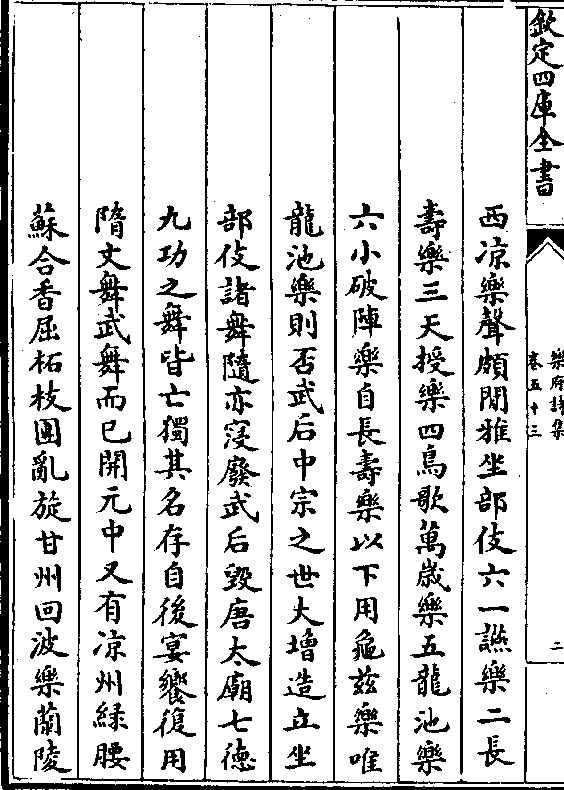 欽定四庫全書
樂府詩集
卷五十三
二
西凉樂聲頗閒雅坐部伎六一讌樂二長
壽樂三天授樂四鳥歌萬歲樂五龍池樂
六小破陣樂自長壽樂以下用龜兹樂唯
龍池樂則否武后中宗之世大增造立坐
部伎諸舞隨亦寖廢武后毀唐太廟七徳
九功之舞皆亡獨其名存自後宴饗復用
隋文舞武舞而已開元中又有凉州緑腰
蘇合香屈柘枝團亂旋甘州回波樂蘭陵